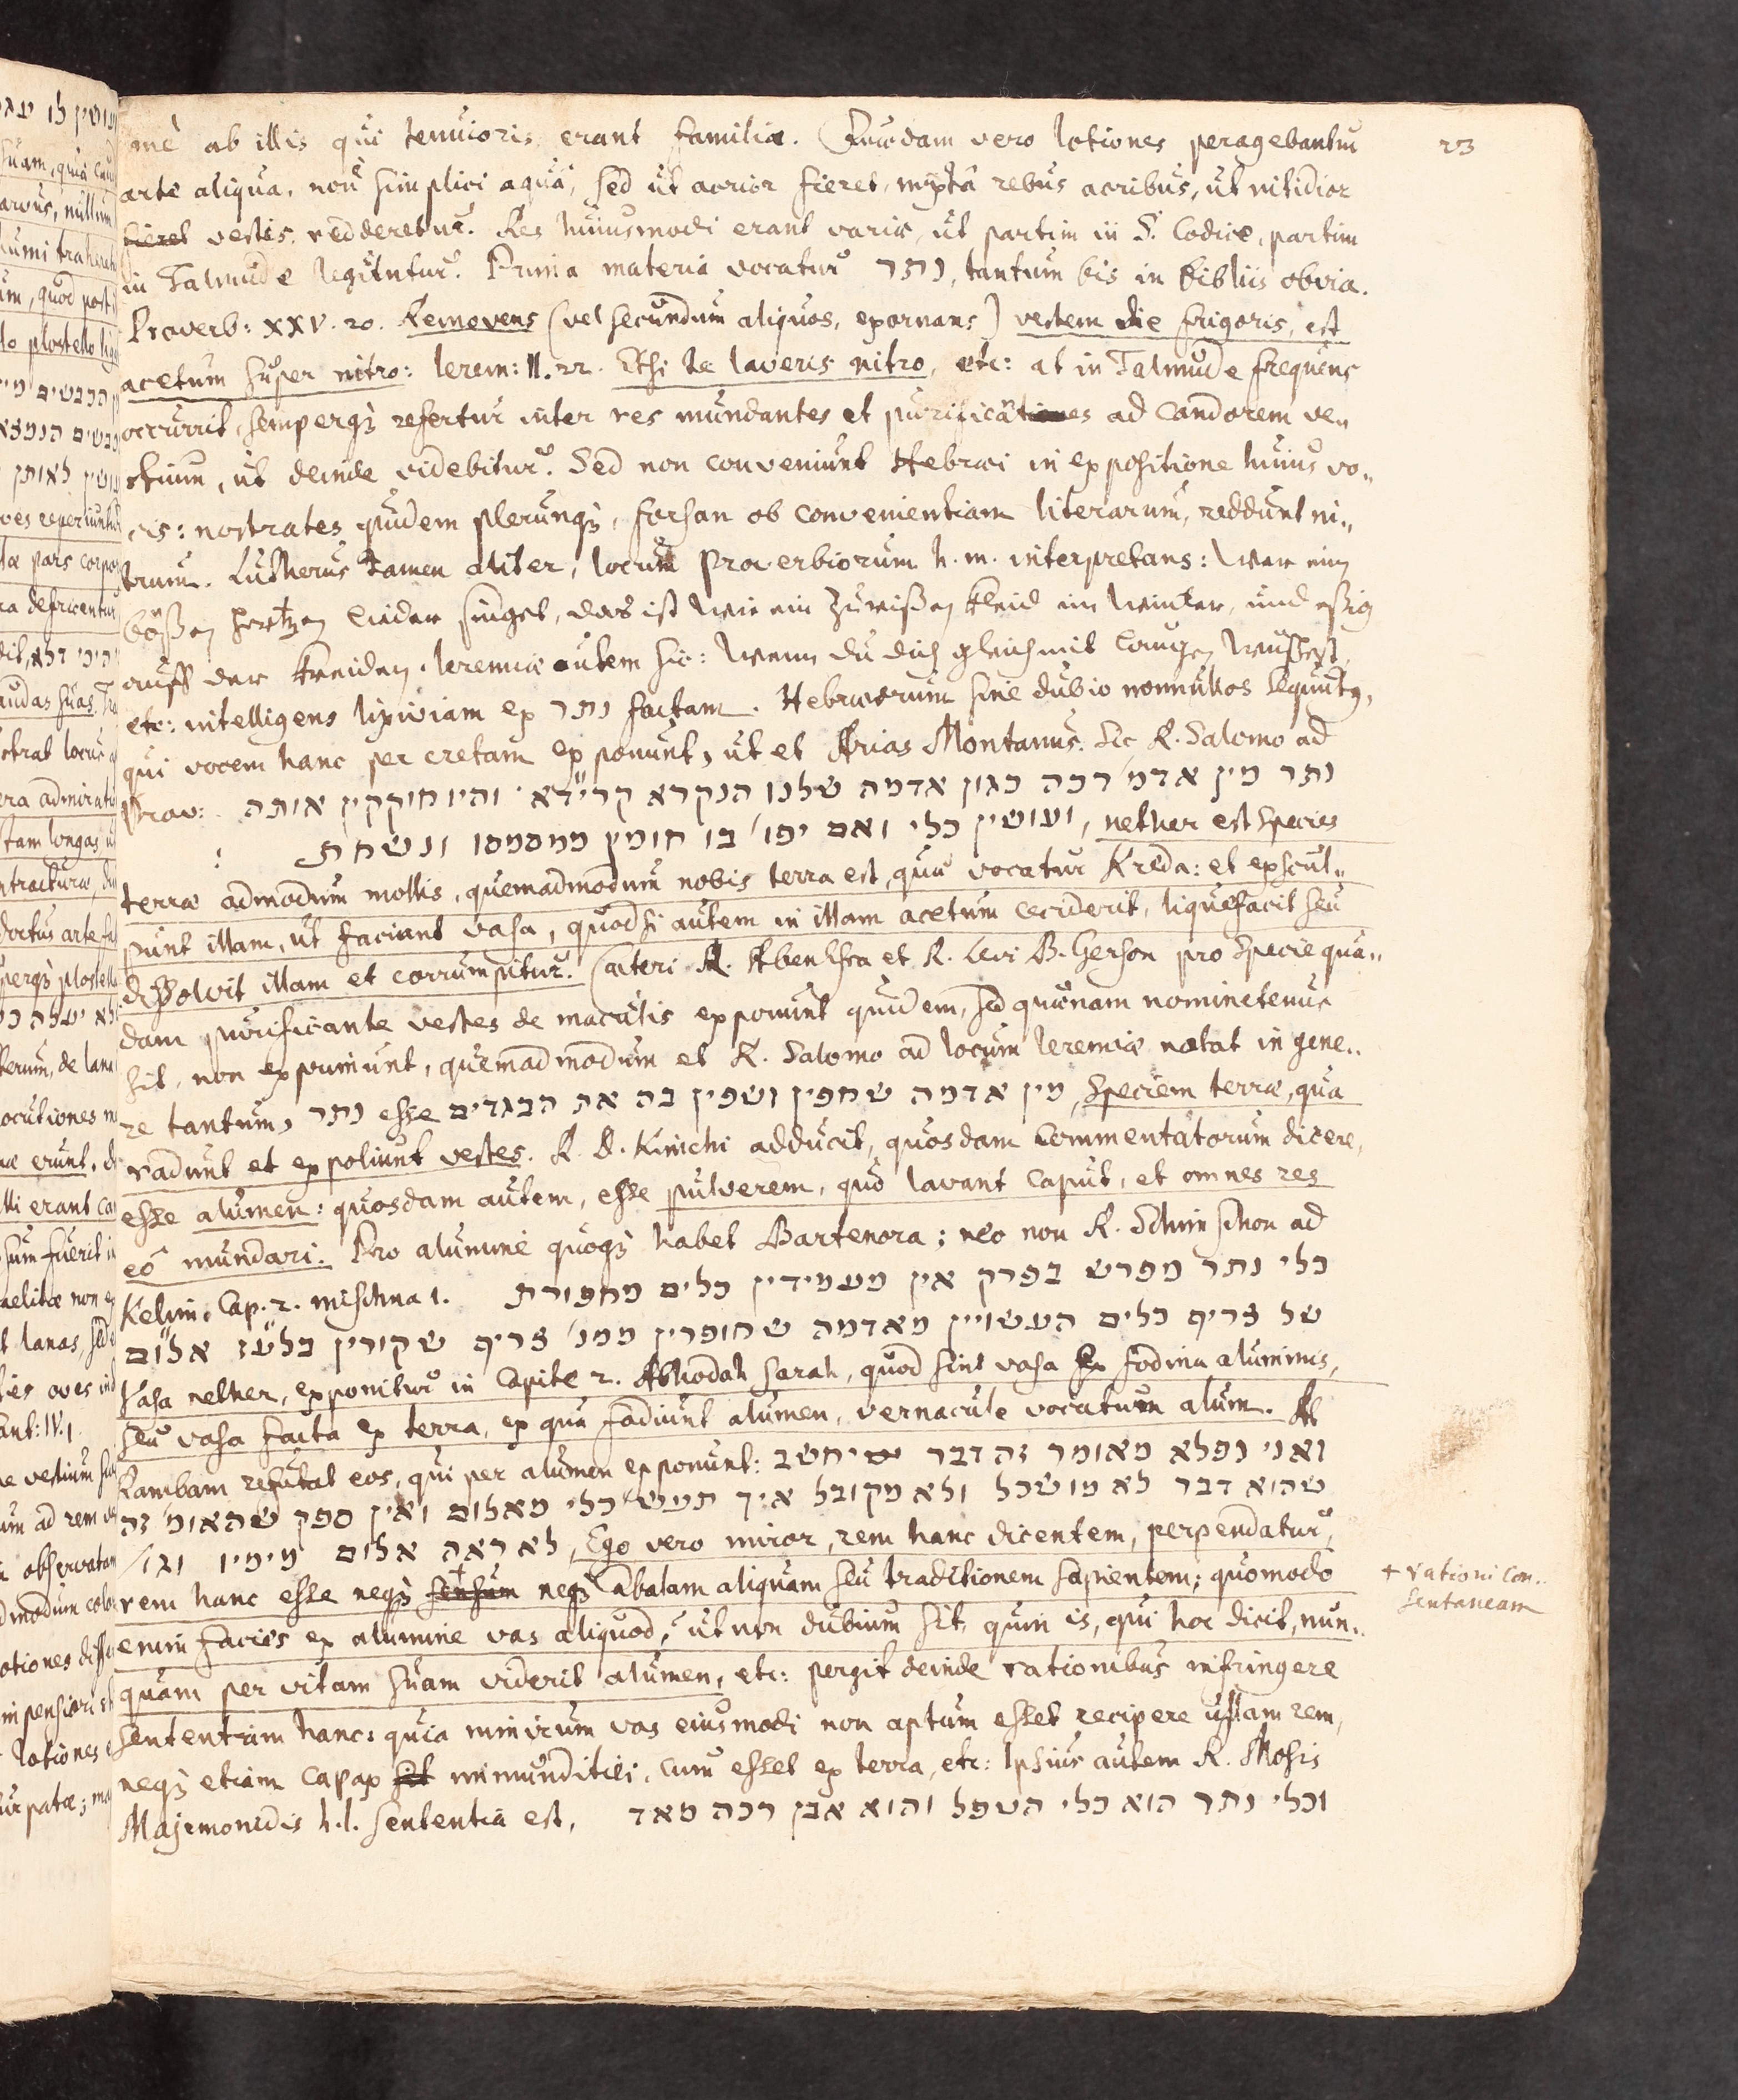 23
me ab illis qui tenuioris erant familiæ. Quædam vero lotiones peragebantur
arte aliqua, non simplici aquâ, sed ut acrior fieret, mixtâ rebus acribus, ut nitidior
fieret vestis redderetur. Res huiusmodi erant variæ, ut partim in S. Codice, partim
in Talmude legûntur. Prima materia vocatur נתר, tantum bis in bibliis obvia.
Proverb: XXV. 20. Removens (vel secundum aliquos, exornans) vestem die frigoris, est
acetum super nitro: Ierem: II. 22. Etsi te laveris nitro, etc: at in Talmude frequens
occurrit, semperq; refertur inter res mundantes et purificâtiones ad candorem ve„
stium, ut deinde videbitur. Sed non conveniunt Hebræi in expositione huius vo„
cis: nostrates quidem plerunq;, forsan ob convenientiam literarum, reddunt ni„
trum. Lutherus tamen aliter, locum Proverbiorum h. m. interpretans: Wer eim
bößen hertzen lieder singet, das ist wie ein zurißen kleid im winter, und eßig
auff der kreiden. Ieremiæ autem sic: Wenn du dich gleich mit laugen wüschest,
etc: intelligens lixiviam ex נתר factam. Hebræorum sine dubio nonnullos sequutq,
qui vocem hanc per cretam exponunt, ut et Arias Montanus. Sic R. Salomo ad
Prov: נתר מין אדמ׳ רכה כגון אדמה שלנו הנקרא קרי״דא׳ והיו חוקקין אותה
ועושין כלי ואם יפו׳ בו חומץ ממסמסו ונשחת : , nether est species
terræ admodum mollis, quemadmodum nobis terra est, quæ vocatur Kreda: et exscul„
punt illam, ut faciant vasa, quodsi autem in illam acetum ceciderit, liquefacit seu
dissolvit illam et corrumpitur. Cæteri R. Aben Esra et R. Levi B. Gerson pro specie quâ„
dam purificante vestes de maculis exponunt quidem, sed quænam nominetenus
sit, non exprimunt, quemadmodum et R. Salomo ad locum Ieremiæ notat in gene„
re tantum, נתר esse מין אדמה שחפין ושפין בה את הבגדים, speciem terræ, qua
radunt et expoliunt vestes. R. D. Kimchi adducit, quosdam Commentatorum dicere,
esse alumen: quosdam autem, esse pulverem, quo lavant caput, et omnes res
eô mundari. Pro alumine quoq; habet Bartenora; nec non R. Schimschon ad
Kelim. Cap. 2. mischna 1. כלי נתר מפרש בפרק אין מעמידין כלים מחפורת
של צריף כלים העשויין מאדמה שחופרין ממנ׳ צריף שקורין בלע״ז אלו״ם
Vasa nether, exponitur in Capite 2. Abhodah sarah, quod sint vasa Ex fodina aluminis,
seu vasa facta ex terra, ex qua fodiunt alumen, vernacule vocatum alum. At
Rambam refutat eos, qui per alumen exponunt: ואני נפלא מאומר זה דבר שיחשב
שהוא דבר לא מושכל ולא מקובל איך תעש׳ כלי מאלום ואין ספק שהאומ׳ זה
לא ראה אלום מימיו וגו׳, Ego vero miror, rem hanc dicentem, perpendatur,
rem hanc esse neq; sensum + neq; Cabalam aliquam seu traditionem sapientem; quomodo
+ rationi con„
sentaneam
enim facies ex alumine vas aliquod, ut non dubium sit, quin is, qui hoc dicit, nun„
quam per vitam suam viderit alumen, etc: pergit deinde rationibus infringere
sententiam hanc: quia nimirum vas eiusmodi non aptum esset recipere ullam rem,
neq; etiam capax sit immunditiei, cum esset ex terra, etc: Ipsius autem R. Mosis
Majemonidis h. l. sententia est, וכלי נתר הוא כלי השפל והוא אבן רכה מאד